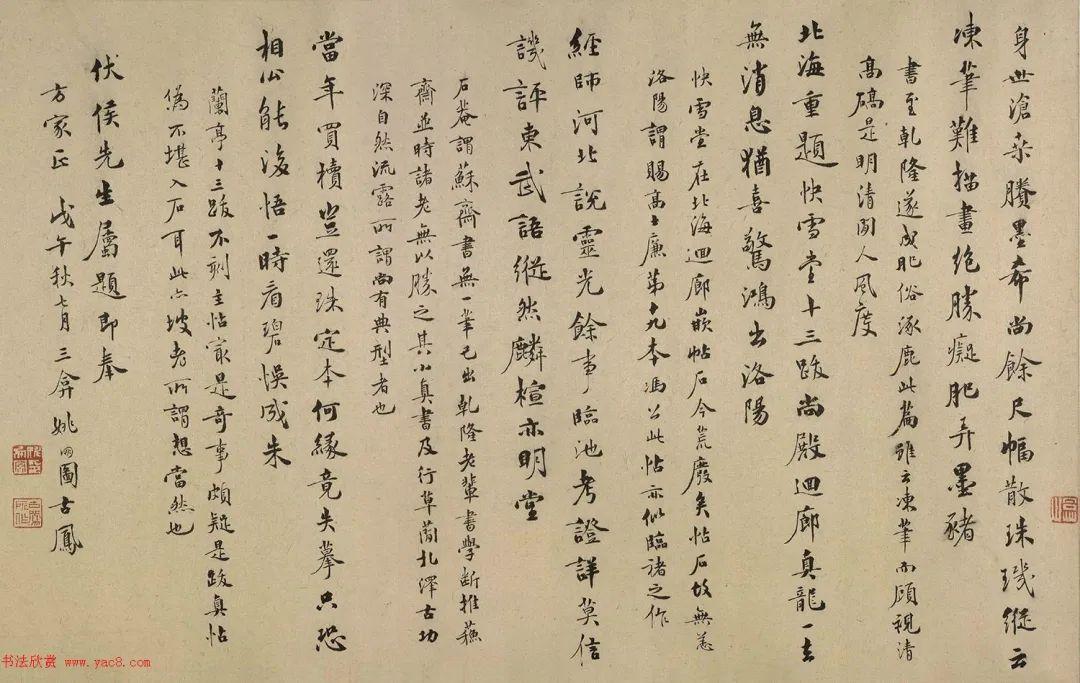 身世滄桑賸墨希尚餘尺幅散珠璣縱云
凍筆難描畫絶勝癡肥弄墨豬
書至乾隆遂成肥俗涿鹿此篇雖云凍筆而頋視清
高矯是明清間人風度
北海重題快雪堂十三跋尚殿迴廊奐龍一去
無消息猶喜驚鴻出洛陽
快雪堂在北海迴廊嵌帖石今荒廢矣帖石故無恙
洛陽謂賜高士廉第九本馮公此帖亦似臨褚之作
經師河北說靈光餘事臨池考證詳莫信
譏評東武語縱然麟楦亦明堂
石菴謂蘇齋書無一筆己出乾隆老輩書學斷推蘇
齋並時諸老無以勝之其小真書及行草蕳札澤古功
深自然流露所謂尚有典型者也
當年買櫝豈還珠定本何緣竟失摹只恐
相公能後悟一時看碧悞成朱
蘭亭十三跋不刻主帖寔是奇事頗疑是跋真帖
偽不堪入石耳此亦坡老所謂想當然也
伏侯先生屬題即奉
方家正 戊午秋七月三弇姚 圖古鳳
书法欣赏 www.yac8.com